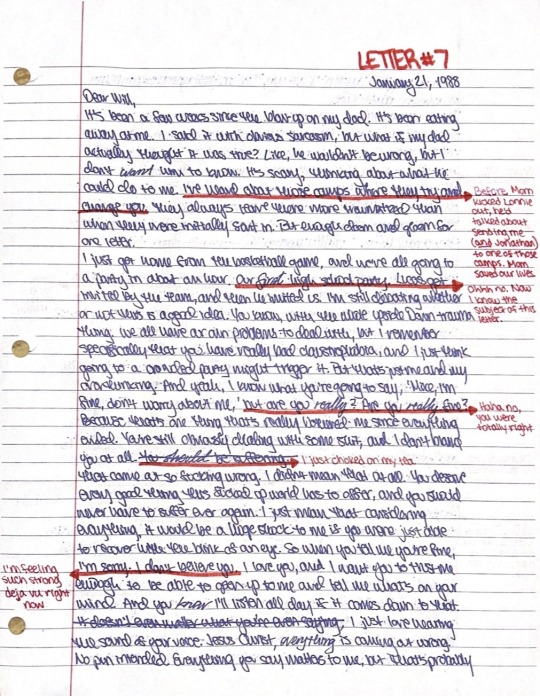 LETTER #7
January 21, 1988
Dear Will,
It's been a few weeks since the blow up on my dad. It's been eating
away at me. I said it with obvious sarcasm, but what if my dad
actually thought it was true? Like, he wouldn't be wrong, but I
don't want him to know. It's scary, thinking about what he
could do to me. I've heard about those camps where they try and
change you. They always leave there more traumatized than
when they were initially sent in. But enough doom and gloom for
one letter.
I just got home from the basketball game, and we're all going to
a party in about an hour. Our first high school party. Lucas got
invited by the team, and then he invited us. I'm still debating whether
or not this is a good idea. You know, with the whole Upside Down trauma
thing, we all have our own problems to deal with, but I remember
specifically that you have really bad claustrophobia, and I just think
going to a crowded party might trigger it. But that's just me and my
overthinking. And yeah, I know what you're going to say, "Mike, I'm
fine, don't worry about me," but are you really? Are you really fine?
Because that's one thing that's really bothered me since everything
ended. You're still obviously dealing with some shit, and I don't blame
you at all. You should be suffering
That came out so fucking wrong. I didn't mean that at all. You deserve
every good thing this sick old world has to offer, and you should
never have to suffer ever again. I just mean that considering
everything, it would be a huge shock to me if you were just able
to recover in the blink of an eye. So when you tell me you're fine,
I'm sorry, I don't believe you. I love you, and I want you to trust me
enough to be able to open up to me and tell me what's on your
mind. And you know I'll listen all day if it comes down to that.
It doesn't even matter what you're even saying, I just love hearing
the sound of your voice. Jesus Christ, everything is coming out wrong.
No pun intended. Everything you say matters to me, but that's probably
Before Mom
kicked Lonnie
out, he'd
talked about
sending me
(and Jonathan)
to one of those
camps. Mom
saved our lives.
Ohhh no. Now
I know the
subject of this
letter.
Haha no,
you were
totally right
I just choked on my tea
I'm feeling
such strong
deja vu right
now